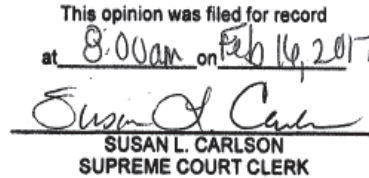 This opinion was filed for record
at 8:00am on Feb 16, 2017
Susan L. Carlson
SUSAN L. CARLSON
SUPREME COURT CLERK